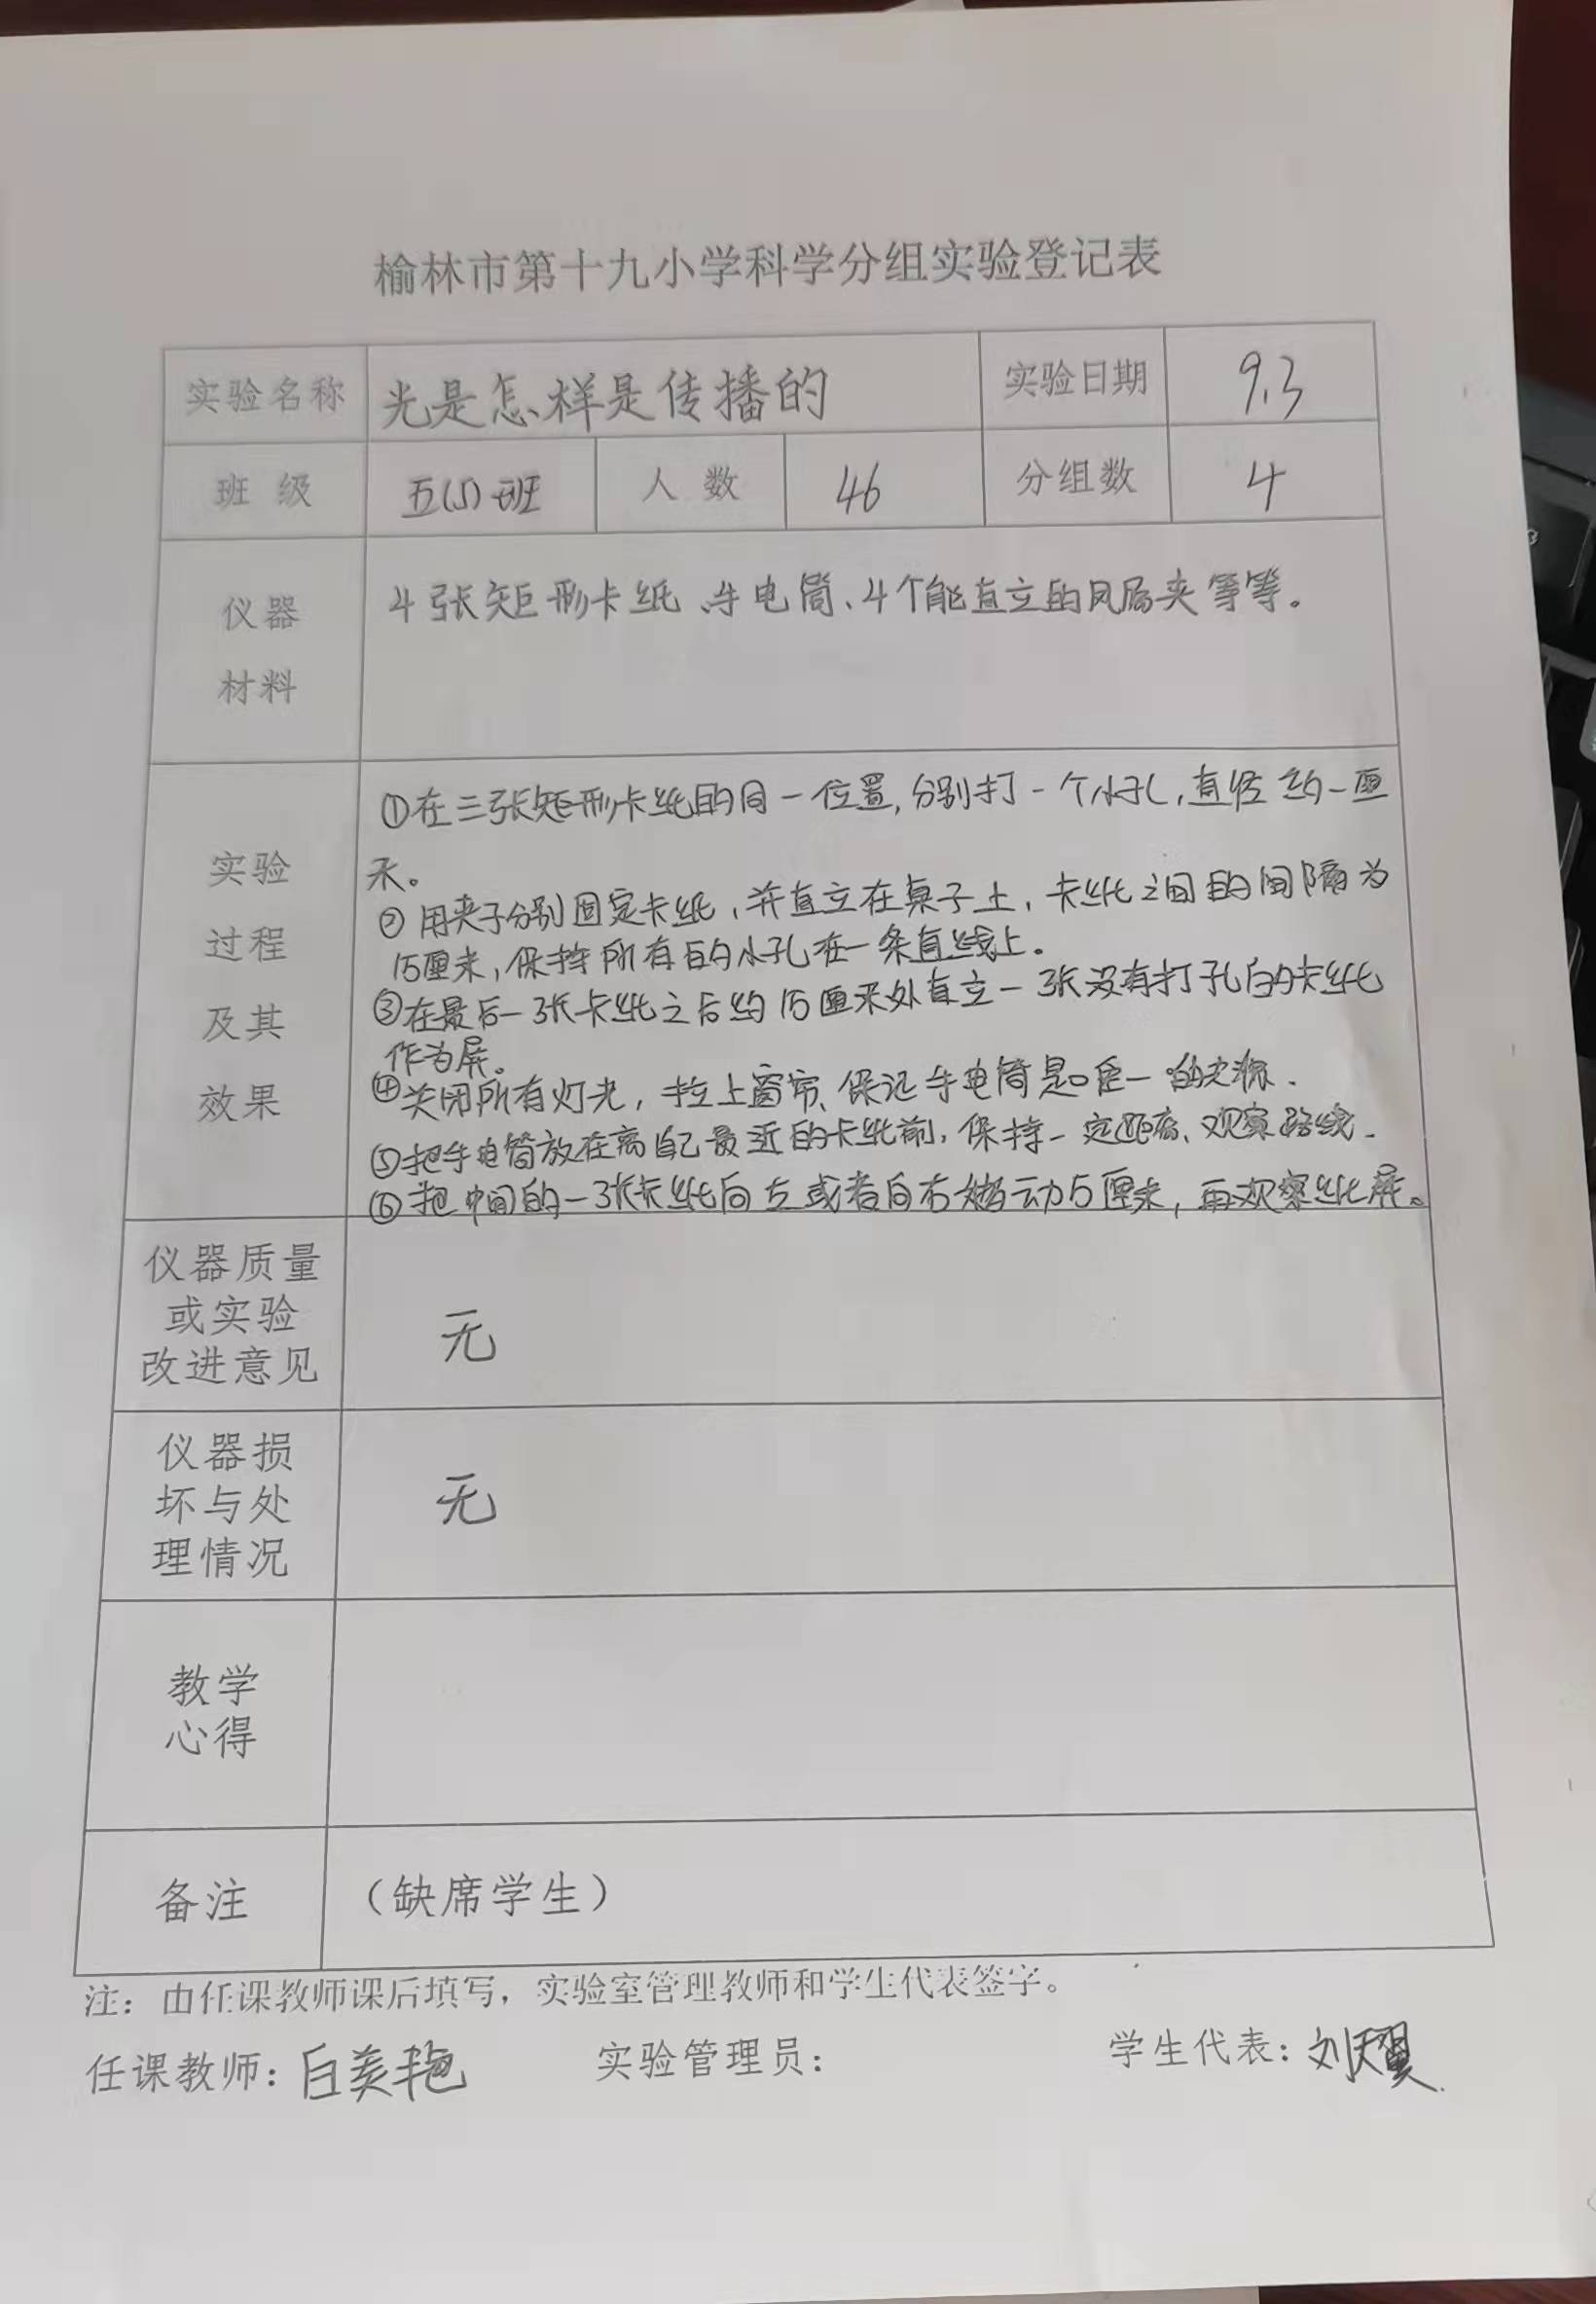 榆林市第十九小学科学分组实验登记表
实验名称 光是怎样是传播的 实验日期 9.3
班 级 五(5)班 人 数 46 分组数 4
仪器
材料
4张矩形卡纸、手电筒、4个能直立的凤尾夹等等。
实验
过程
及其
效果
①在三张矩形卡纸的同一位置,分别打一个小孔,直径约一厘
米。
②用夹子分别固定卡纸,并直立在桌子上,卡纸之间的间隔为
15厘米,保持所有的小孔在一条直线上。
③在最后一张卡纸之后约15厘米处直立一张没有打孔的卡纸
作为屏。
④关闭所有灯光,拉上窗帘、保证手电筒是唯一的光源.
⑤把手电筒放在离自己最近的卡纸前,保持一定距离、观察路线.
⑥把中间的一张卡纸向左或者向右挪动5厘米,再观察纸屏。
仪器质量
或实验
改进意见
无
仪器损
坏与处
理情况
无
教学
心得
备注 (缺席学生)
注:由任课教师课后填写,实验室管理教师和学生代表签字。
任课教师:白美艳 实验管理员: 学生代表:刘天翼